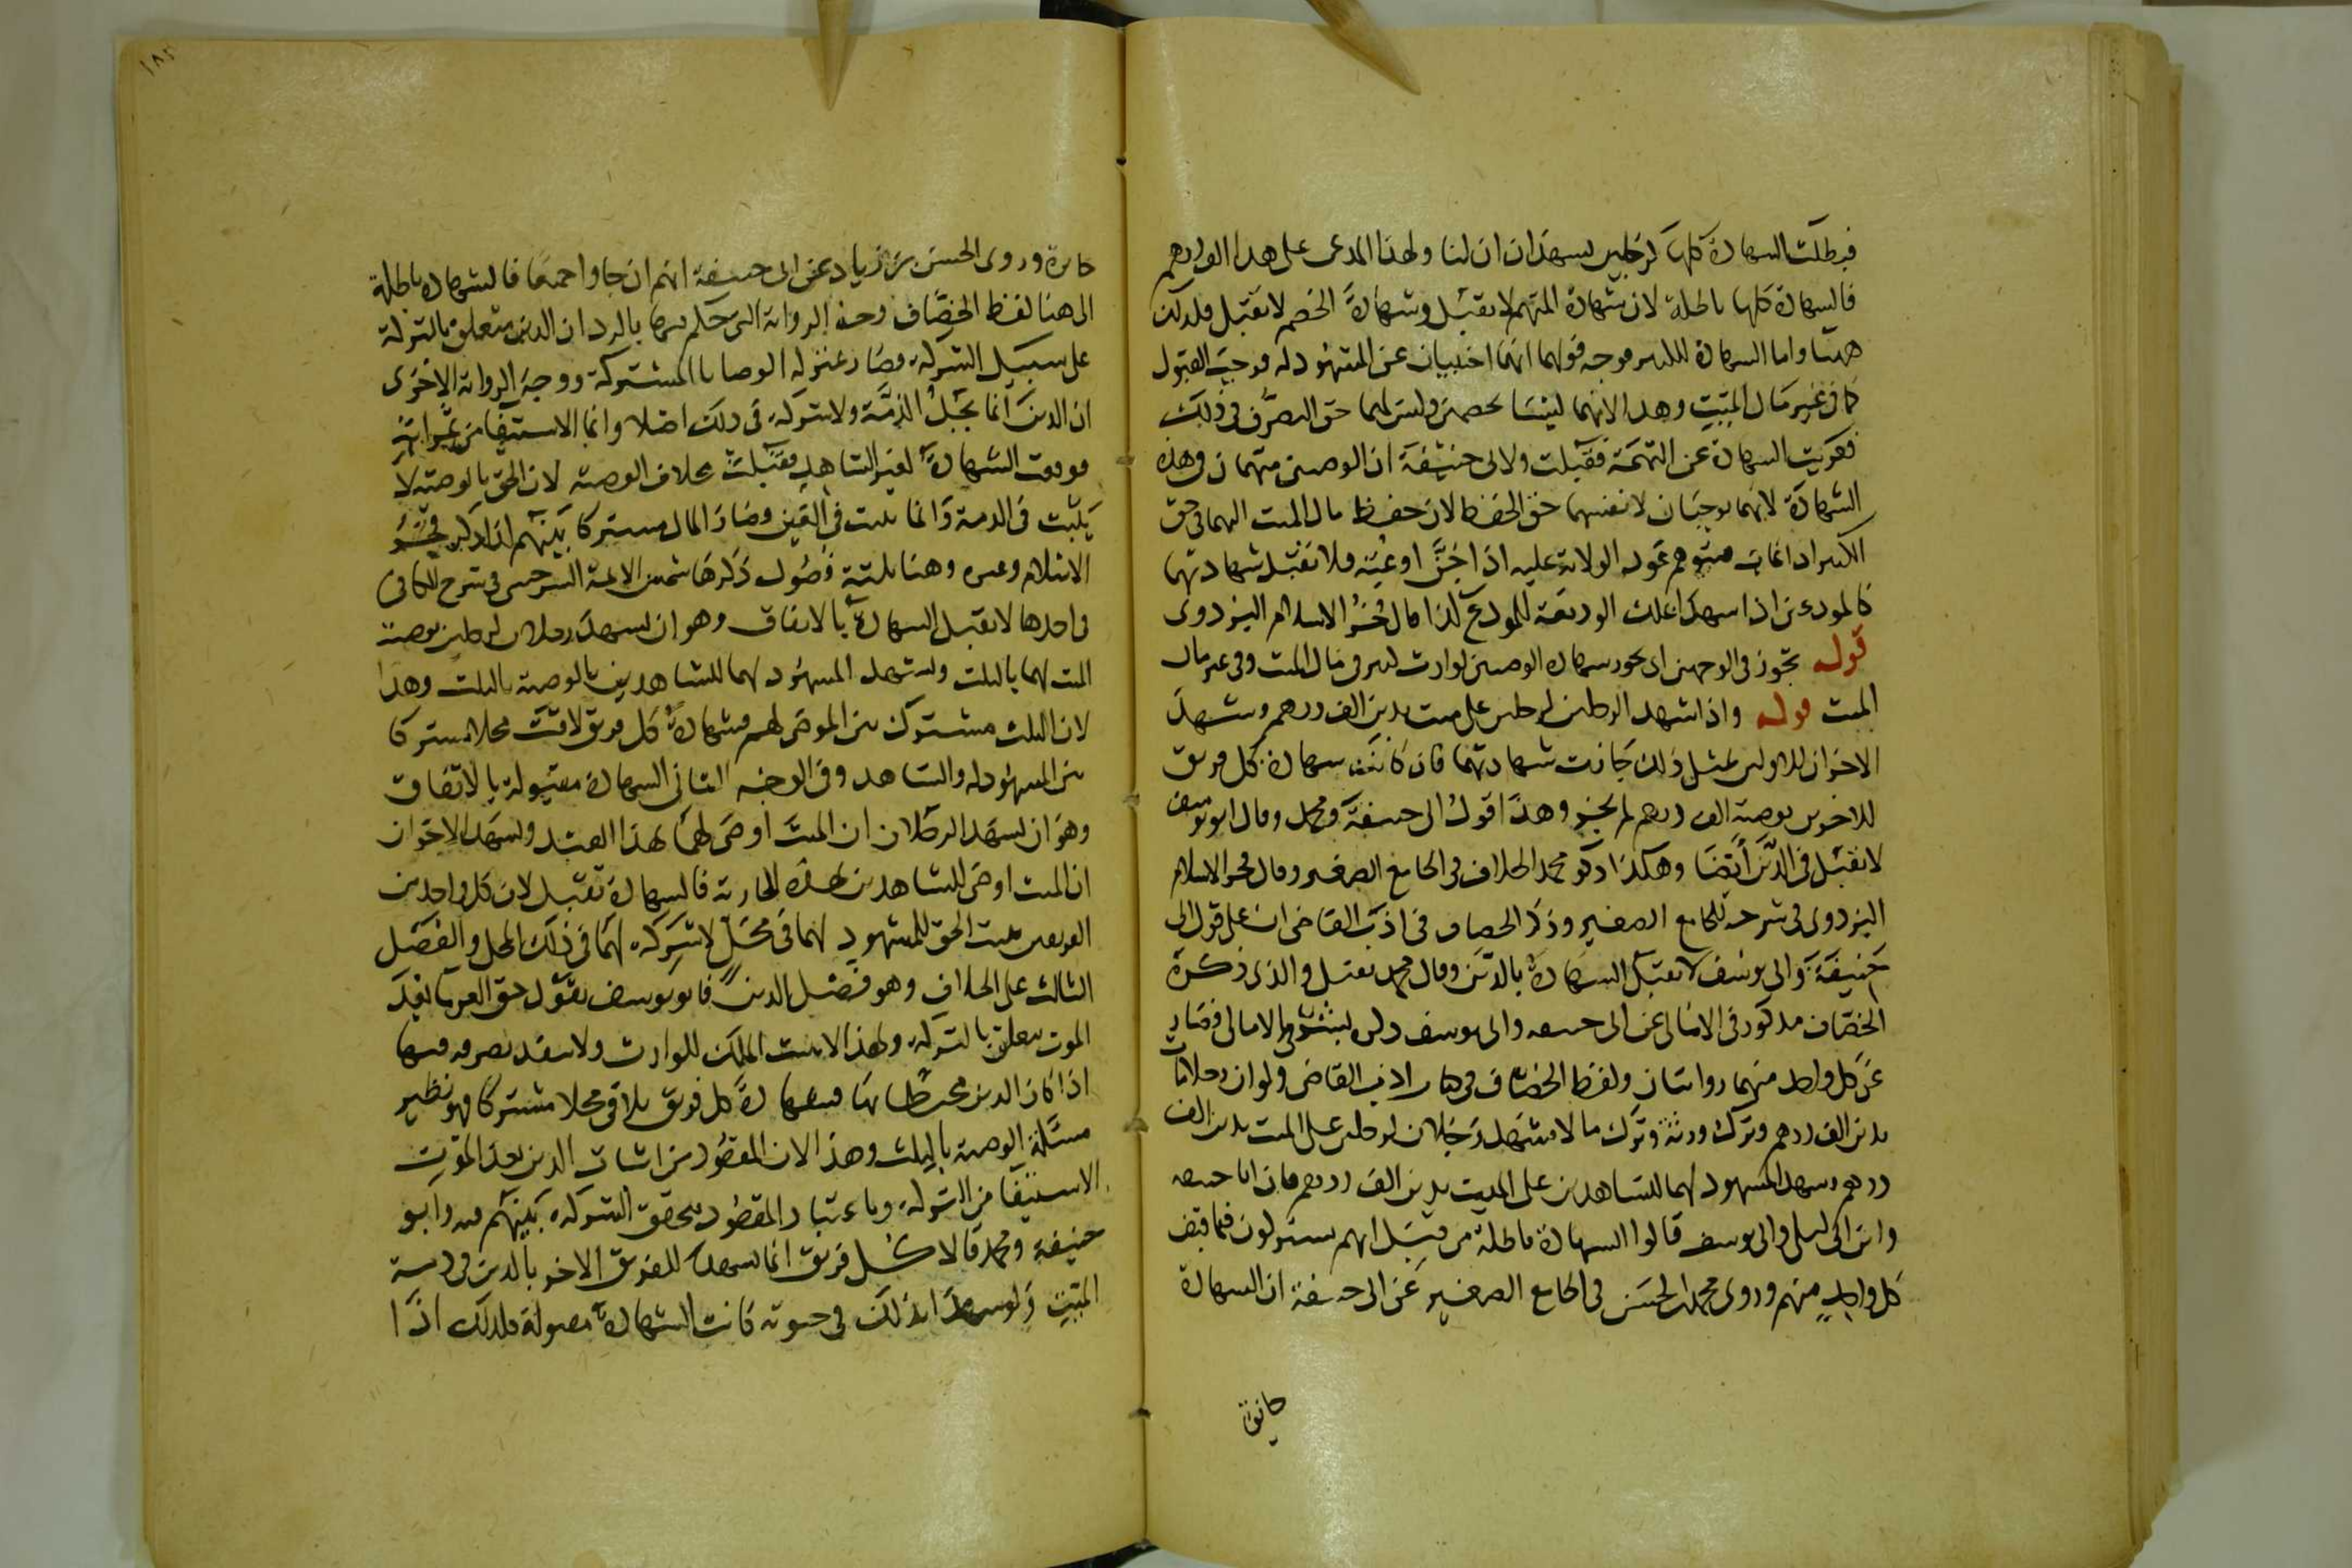 فبطلت الشهادة كلها كرجلين يشهدان ان لنا ولهذا المدعى على هذا الف درهم
فالشهادة كلها باطلة لان شهادة المتهم لا تقبل وشهادة الخصم لا تقبل فلذلك
ههنا واما الشهادة للكبير فوجه قولهما انهما اجنبيان عن المشهود له فوجب القبول
كما فى غير مال الميت وهذا لانهما ليسا بخصمين وليس لهما حق التصرف فى ذلك
فعريت الشهادة عن التهمة فقبلت ولابى حنيفة ان الوصيين متهمان فى هذه
الشهادة لانهما يوجبان لانفسهما حق الحفظ لان حفظ مال الميت اليهما فى حق
الكبير اذا غاب فيتوهم عود الولاية عليه اذا جن او عته فلا تقبل شهادتهما
كالمودعين اذا شهدا بملك الوديعة للمودع كذا قال فخر الاسلام البزدوى
قوله تجوز فى الوجهين اى تجوز شهادة الوصيين لوارث كبير فى مال الميت وفى غير مال
الميت قوله واذا شهد الرجلين لرجلين على ميت بدين الف درهم وشهد
الاخران للاولين بمثل ذلك جازت شهادتهما فان كانت شهادة كل فريق
للاخرين بوصية الف درهم لم يجز وهذا قول ابى حنيفة ومحمد وقال ابو يوسف
لا تقبل فى الدين ايضا وهكذا ذكر محمد الخلاف فى الجامع الصغير وقال فخر الاسلام
البزدوى فى شرحه للجامع الصغير وذكر الخصاف فى ادب القاضى ان على قول ابى
حنيفة وابى يوسف لا تقبل الشهادة بالدين وقال محمد تقبل والذى ذكره
الخصاف مذكور فى الامالى عن ابى حنيفة وابى يوسف الامالى فصار
عن كل واحد منهما روايتان ولفظ الخصاف فى كتاب ادب القاضى ولو ان رجلا مات
بدين الف درهم وترك ورثة وترك مالا فشهد رجلان لرجلين على الميت بدين الف
درهم وشهد المشهود لهما للشاهدين على الميت بدين الف درهم فان ابا حنيفة
وابن ابى ليلى وابى يوسف قالوا الشهادة باطلة من قبل انهم مشتركون فيما قبض
كل واحد منهم وروى محمد بن الحسن فى الجامع الصغير عن ابى حنيفة ان الشهادة
جائزة
جائزة وروى الحسن بن زياد عن ابى حنيفة انهم ان جاوا جميعا فالشهادة باطلة
الى هنا لفظ الخصاف وجه الرواية التى حكم فيها بالرد ان الدين متعلق بالتركة
على سبيل الشركة وصار بمنزلة الوصايا المشتركة ووجه الرواية الاخرى
ان الدين انما يجب الذمة ولا شركة فى ذلك اصلا وانما الاستيفاء من ثمراته
فوقعت الشهادة لغير الشاهد فقبلت بخلاف الوصية لان الحق بالوصية لا
يثبت فى الذمة وانما يثبت فى العين وصار المال مشتركا بينهم كذا ذكر فخر
الاسلام وغيره وهنا ثلثة فصول ذكرها شمس الائمة السرخسى فى شرح الكافى
فى احدها لا تقبل الشهادة بالاتفاق وهو ان يشهد رجلان لرجلين بوصية
الميت لهما بالثلث ويشهد المشهود لهما للشاهدين بالوصية بالثلث وهذا
لان الثلث مشترك بين الموصى لهم فشهادة كل فريق لاقت محلا مشتركا
بين المشهود له والشاهد وفى الوجه الثانى الشهادة مقبولة بالاتفاق
وهو ان يشهد الرجلان ان الميت اوصى لهما بهذا العبد ويشهد الاخران
ان الميت اوصى للشاهدين بهذه الجارية فالشهادة تقبل لان كل واحد من
الفريقين يثبت الحق للمشهود لهما فى محل لا شركة لهما فى ذلك المحل والفصل
الثالث على الخلاف وهو فصل الدين فابو يوسف يقول حق الغرماء بعد
الموت يتعلق بالتركة ولهذا لا يثبت الملك للوارث ولا ينفذ تصرفه فيها
اذا كان الدين محيطا بها فشهادة كل فريق يلاقى محلا مشتركا فهو نظير
مسئلة الوصية بالثلث وهذا لان المقصود من اثبات الدين بعد الموت
الاستيفا من التركة وباعتبار المقصود يتحقق الشركة بينهم فيه وابو
حنيفة ومحمد قالا كل فريق انما يشهد للفريق الاخر بالدين فى ذمة
الميت ولو شهدا بذلك فى حيوته كانت الشهادة مقبولة فلذلك اذا
١٨٢